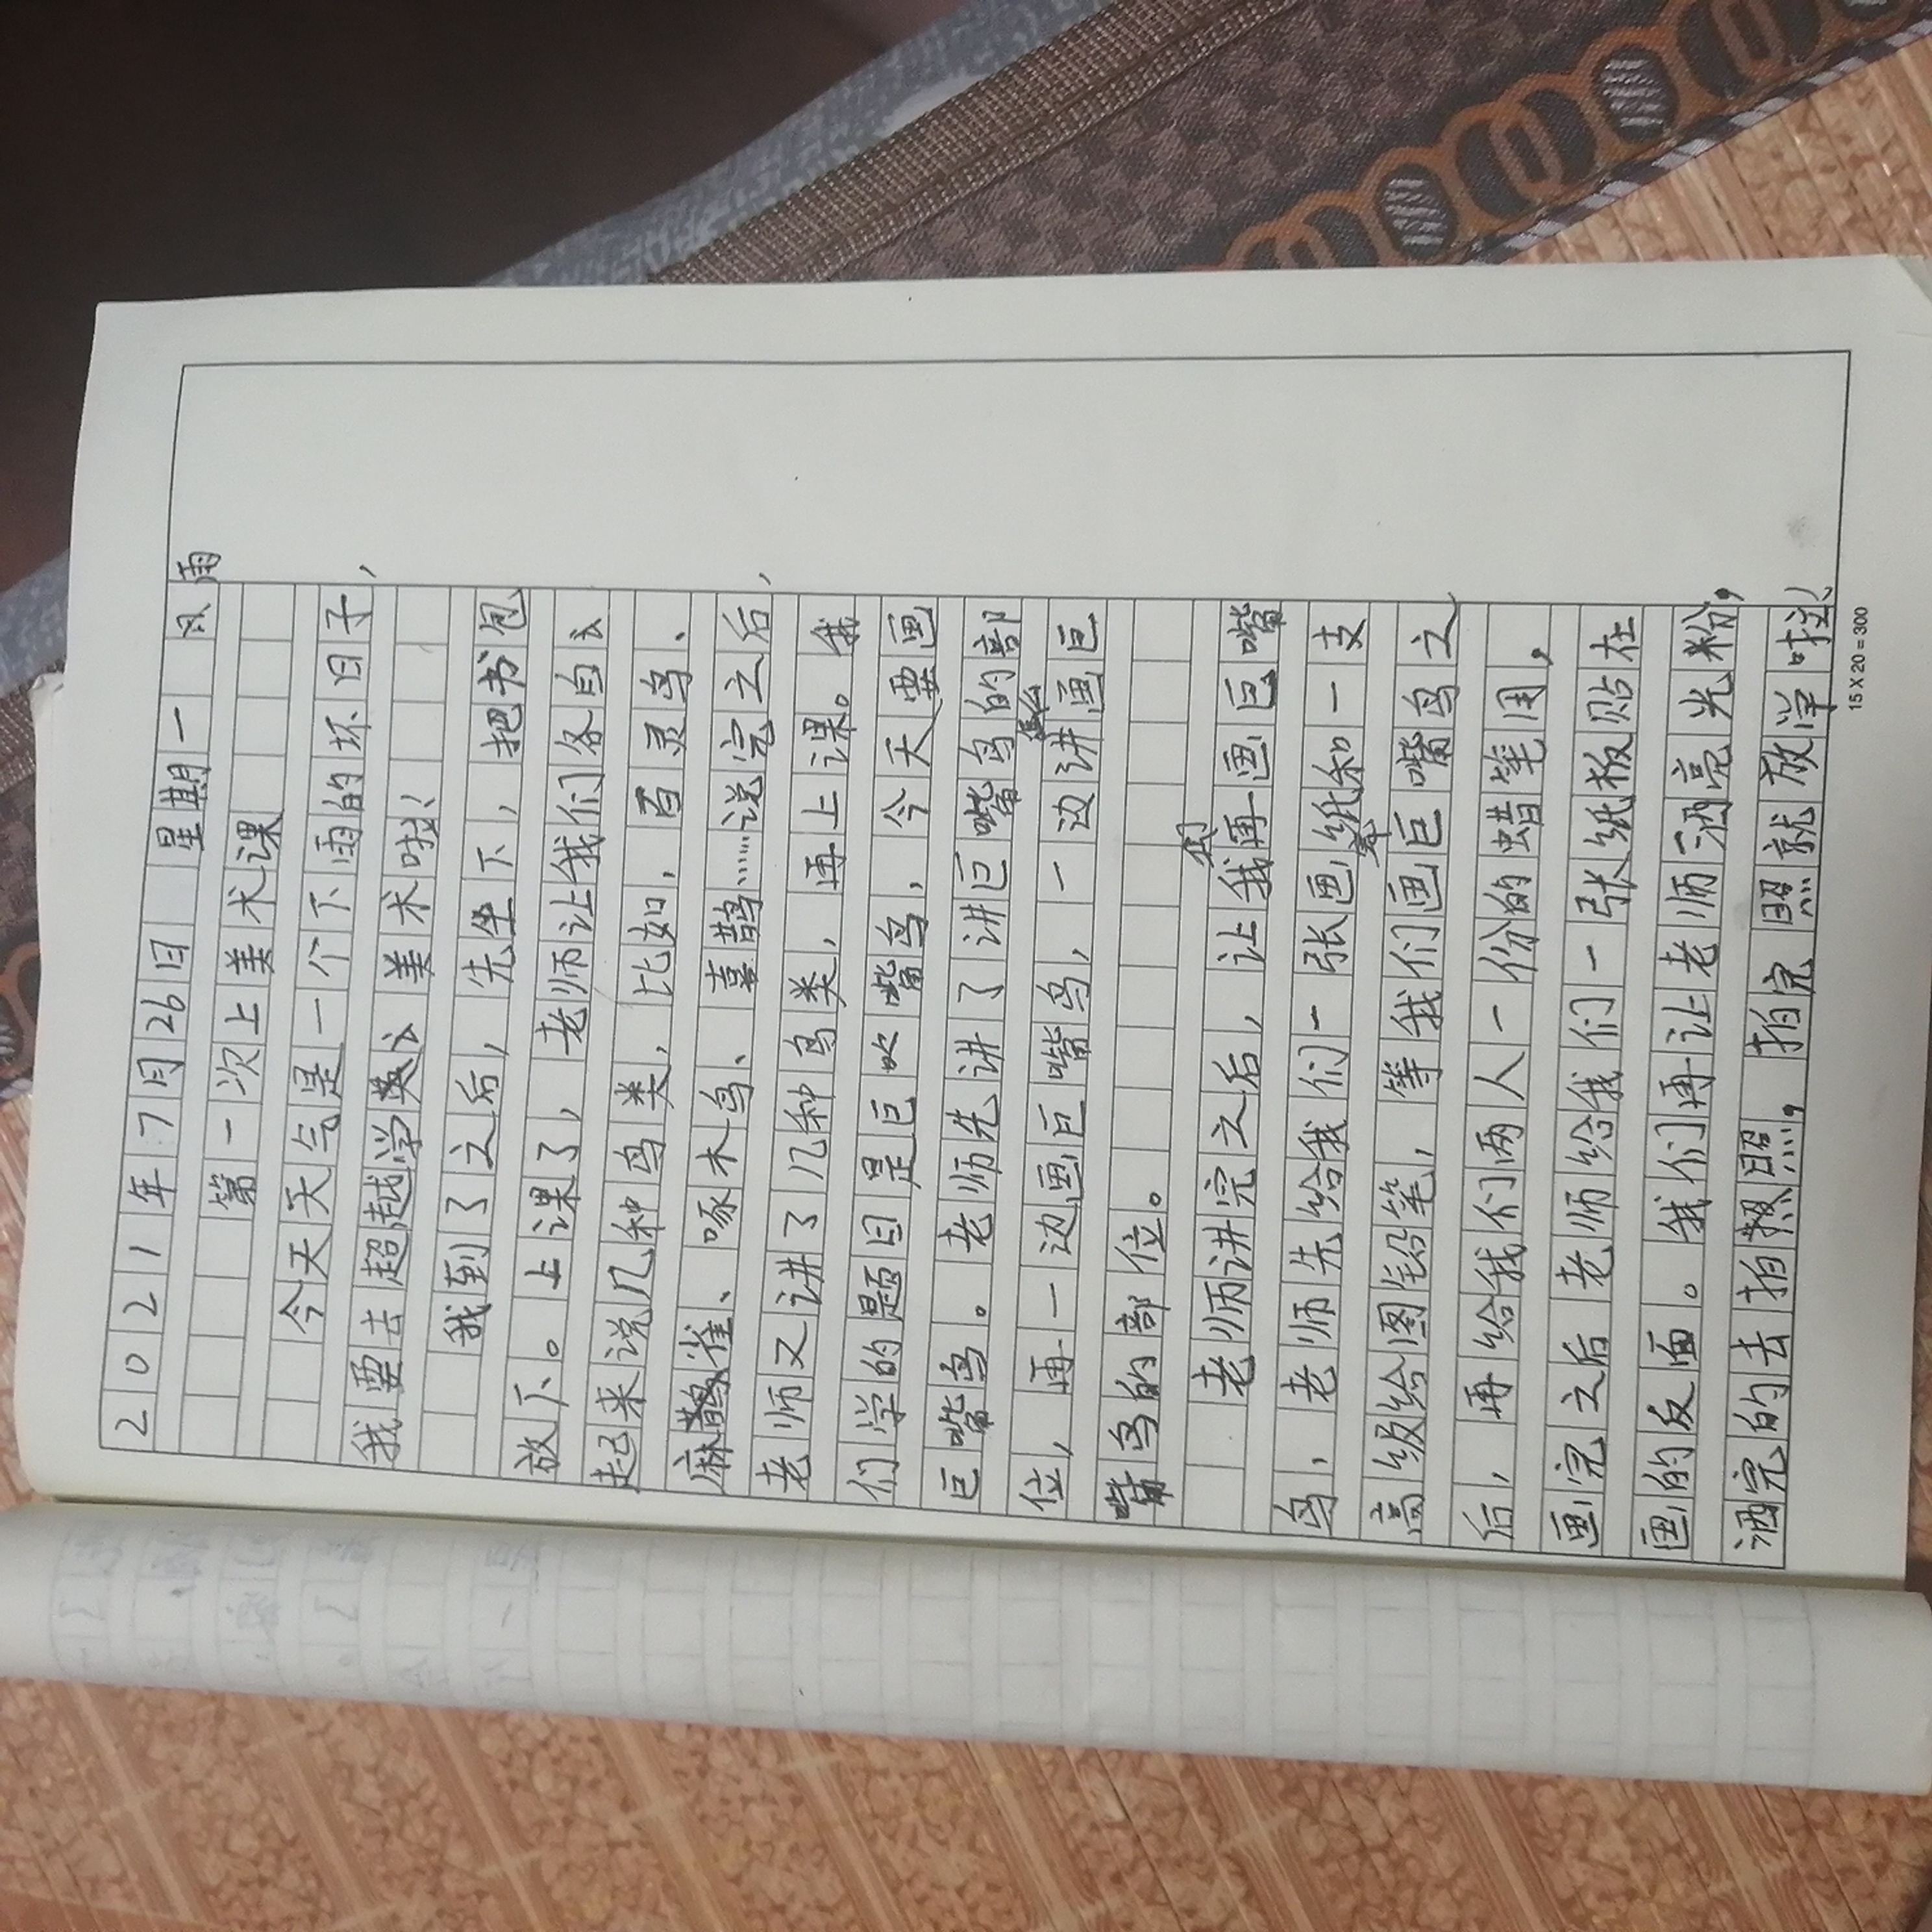 2021年7月26日 星期一 风雨
第一次上美术课
今天天气是一个下雨的坏日子,
我要去超越学美术啦!
我到了之后,先坐下,把书包
放下。上课了,老师让我们各自
起来说几种鸟类,比如,百灵鸟、
麻雀、啄木鸟、喜鹊……说完之后,
老师又讲了几种鸟类,再上课。我
们学的题目是巨吹嘴鸟,今天要画
巨嘴鸟。老师先讲了讲巨嘴鸟的部
位,再一边画巨嘴鸟,一边讲画巨
嘴鸟的部位。
老师讲完之后,让我们再画巨嘴
鸟,老师先给我们一张画纸和一支
高级绘图铅笔,等我们画巨嘴鸟之
后,再给我们两人一份的蜡笔用,
画完之后老师给我们一张纸板贴在
画的反面。我们再让老师洒亮光粉,
洒完的去拍照,拍完照就放学啦!
15 X 20 = 300